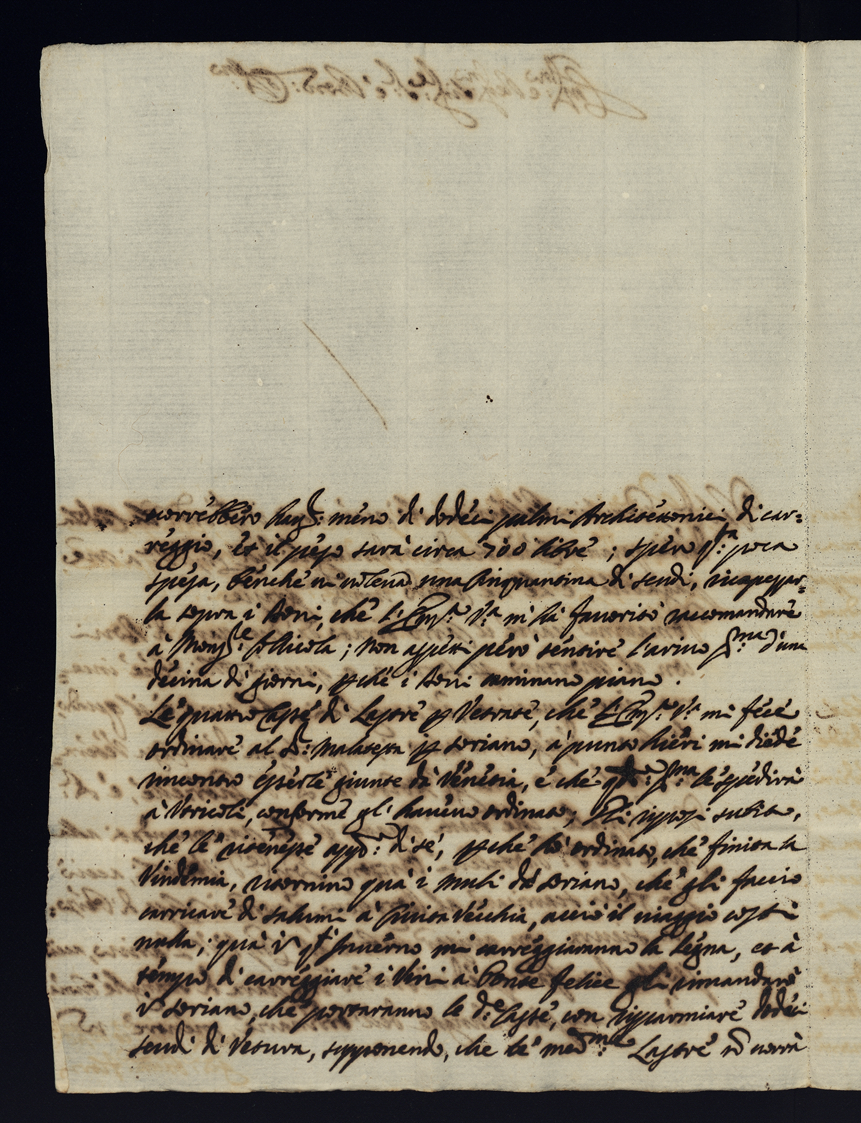 vorrebbero haver meno di dodeci palmi Architetonici di car=
reggio, et il peso sarà circa 700 libre; spero q.ta poca
spesa, benche vi volesse una Cinquantina di scudi,
la sopra i boni, che l'Em.a V.a mi hà favorito raccomandare
à Mons.re Nicola; non aspetti però sentire l'arivo p.ma d'una
decina di giorni, p che i boni caminano piano.
Le quatro Casse di Lastre p Vetrate, che l'Em.a V.a mi fece
ordinare al S.r Malatesta p Soriano, à punto hieri mi diede
rincontro esserle giunte da Venetia, e che p.ma le spedirà
à Otricoli, conforme gl'havevo ordinato; gli risposi subito,
che le ritenesse app.o di sé, p che hò ordinato, che finita la
Vindemia, ritornino quà i muli di Soriano, che gli faccio
carricare di salumi à Civita Vecchia, acciò il viaggio costi
nulla; quà in q.to Inverno mi carreggiaranno la legna, et à
tempo di carreggiare i Vini à Ponte felice gli rimandarò
in Soriano, che portaranno le d.e Casse, con risparmiare dodeci
scudi di Vetura, supponendo, che le med.me Lastre nõ vorrà